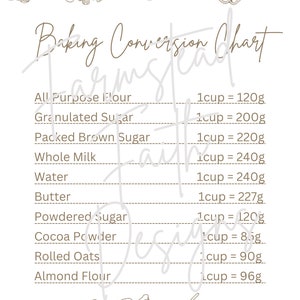 Baking Conversion Chart
All Purpose Flour 1cup = 120g
Granulated Sugar 1cup = 200g
Packed Brown Sugar 1cup = 220g
Whole Milk 1cup = 240g
Water 1cup = 240g
Butter 1cup = 227g
Powdered Sugar 1cup = 120g
Cocoa Powder 1cup = 85g
Rolled Oats 1cup = 90g
Almond Flour 1cup = 96g
Farmstead
Faith
Designs